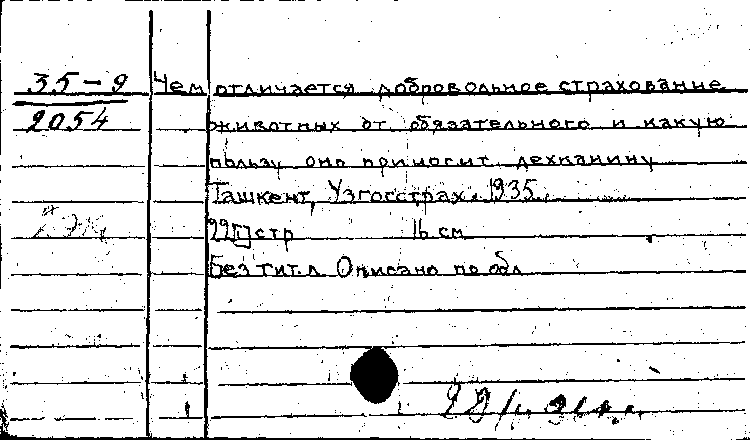 35-9 Чем отличается добровольное страхование
2054 животных от обязательного и какую
пользу оно приносит дехканину
Ташкент, Узгосстрах. 1935.
22[] стр 16 см
Без тит. л Описано по обл